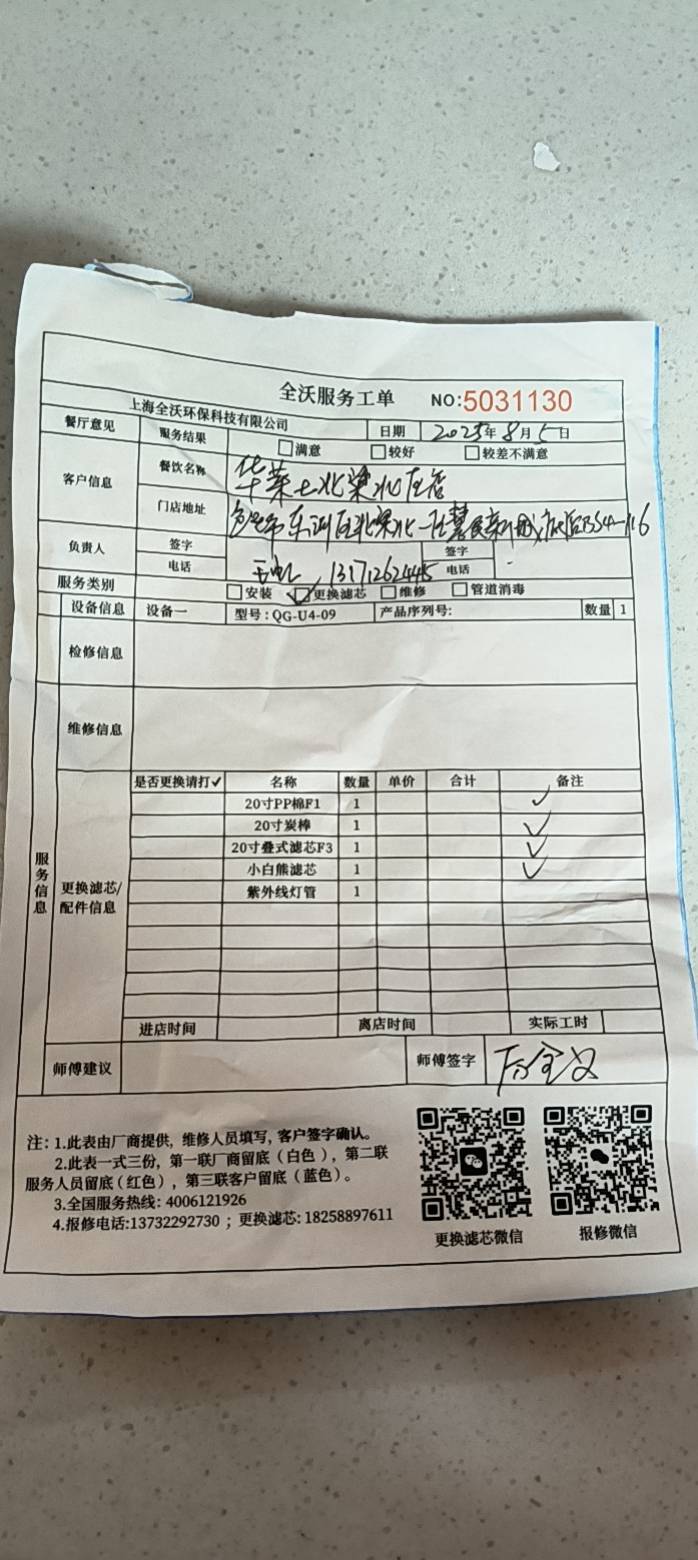 全沃服务工单 NO:5031130
上海全沃环保科技有限公司
餐厅意见 服务结果 日期 2025年8月5日
满意 较好 较差不满意
客户信息 餐饮名称 华莱士北梁北区店
门店地址 包头市东河区北梁北一区
负责人 签字 签字
电话 电话
服务类别 安装 更换滤芯 维修 管道消毒
设备信息 设备一 型号:QG-U4-09 产品序列号: 数量 1
检修信息
维修信息
服务信息
更换滤芯/配件信息
是否更换请打✓ 名称 数量 单价 合计 备注
20寸PP棉F1 1 ✓
20寸炭棒 1 ✓
20寸叠式滤芯F3 1 ✓
小白熊滤芯 1 ✓
紫外线灯管 1
进店时间 离店时间 实际工时
师傅建议 师傅签字
注: 1.此表由厂商提供, 维修人员填写, 客户签字确认。
2.此表一式三份, 第一联厂商留底(白色), 第二联
服务人员留底(红色), 第三联客户留底(蓝色)。
3.全国服务热线: 4006121926
4.报修电话:13732292730 ; 更换滤芯: 18258897611
更换滤芯微信 报修微信